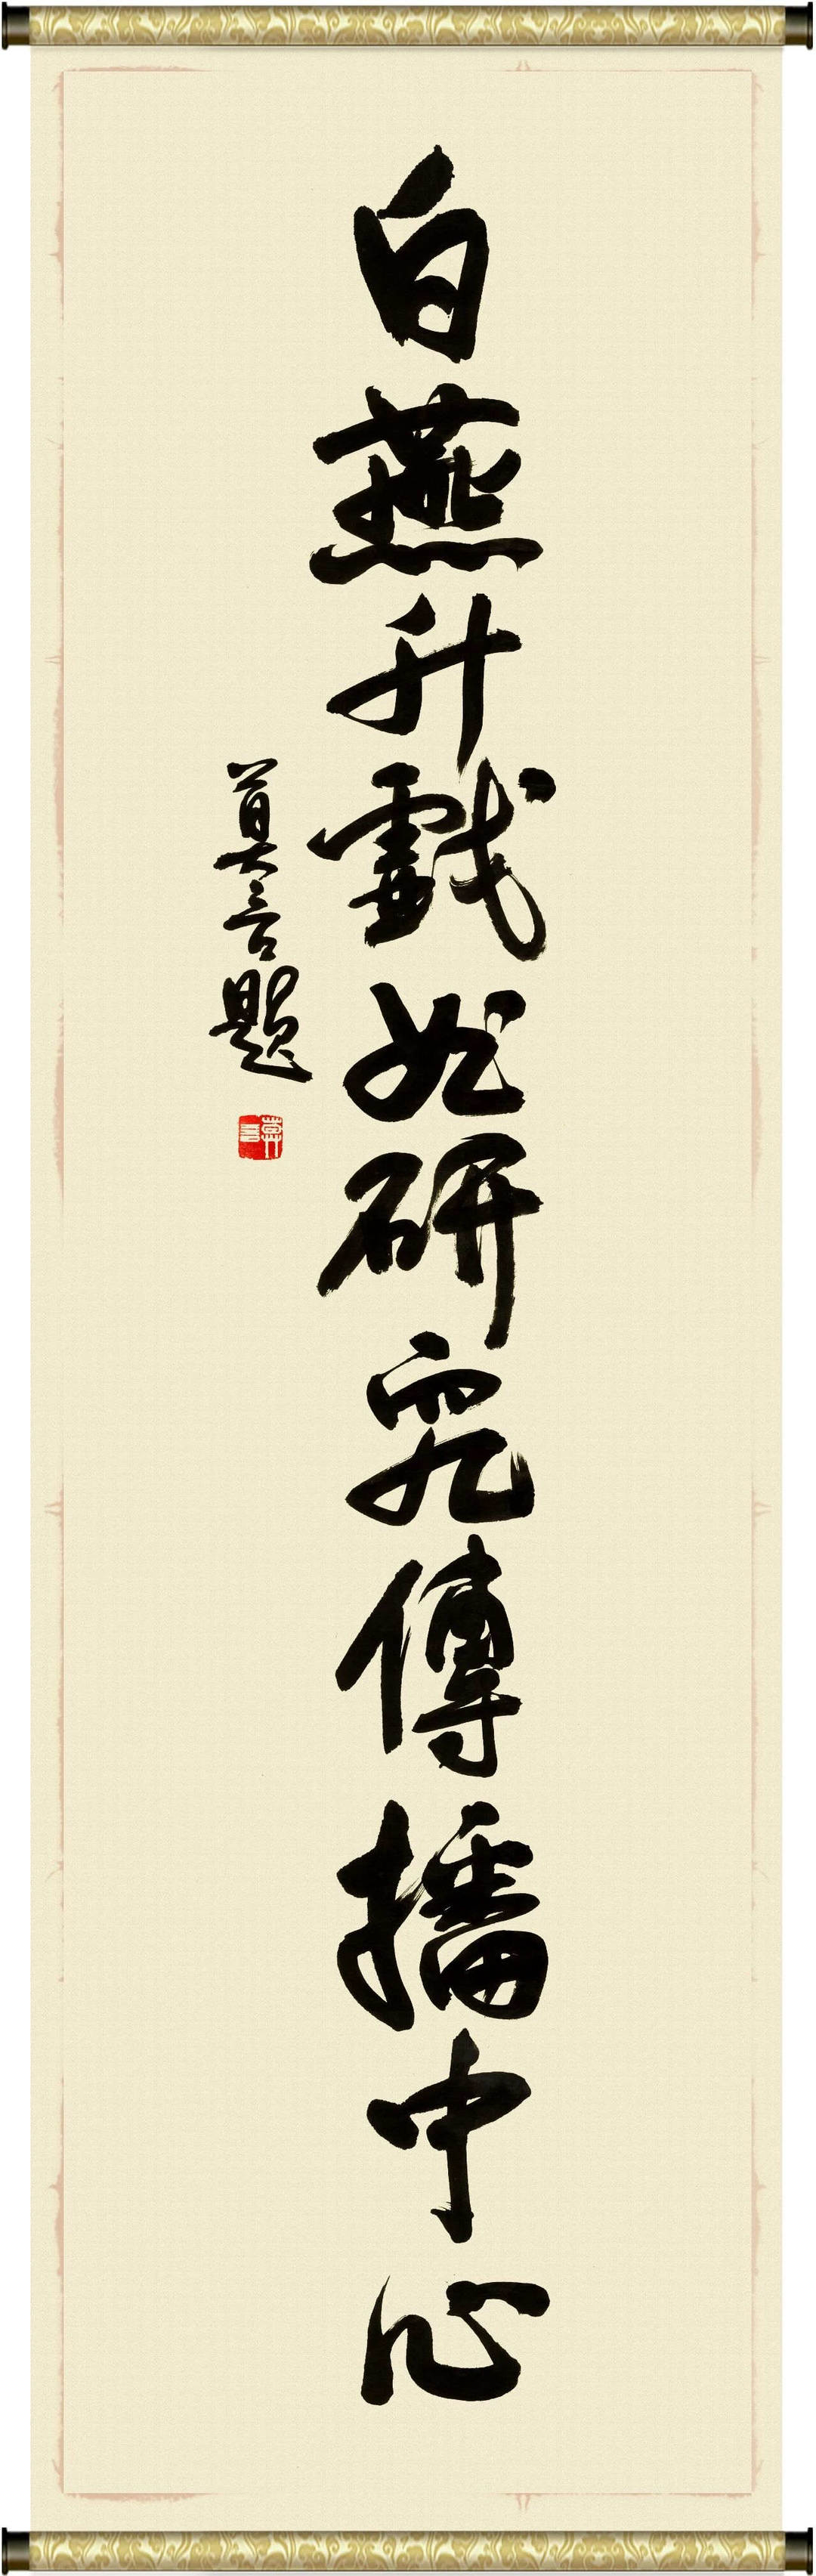 白燕升戲曲研究傳播中心
莫言題
莫言